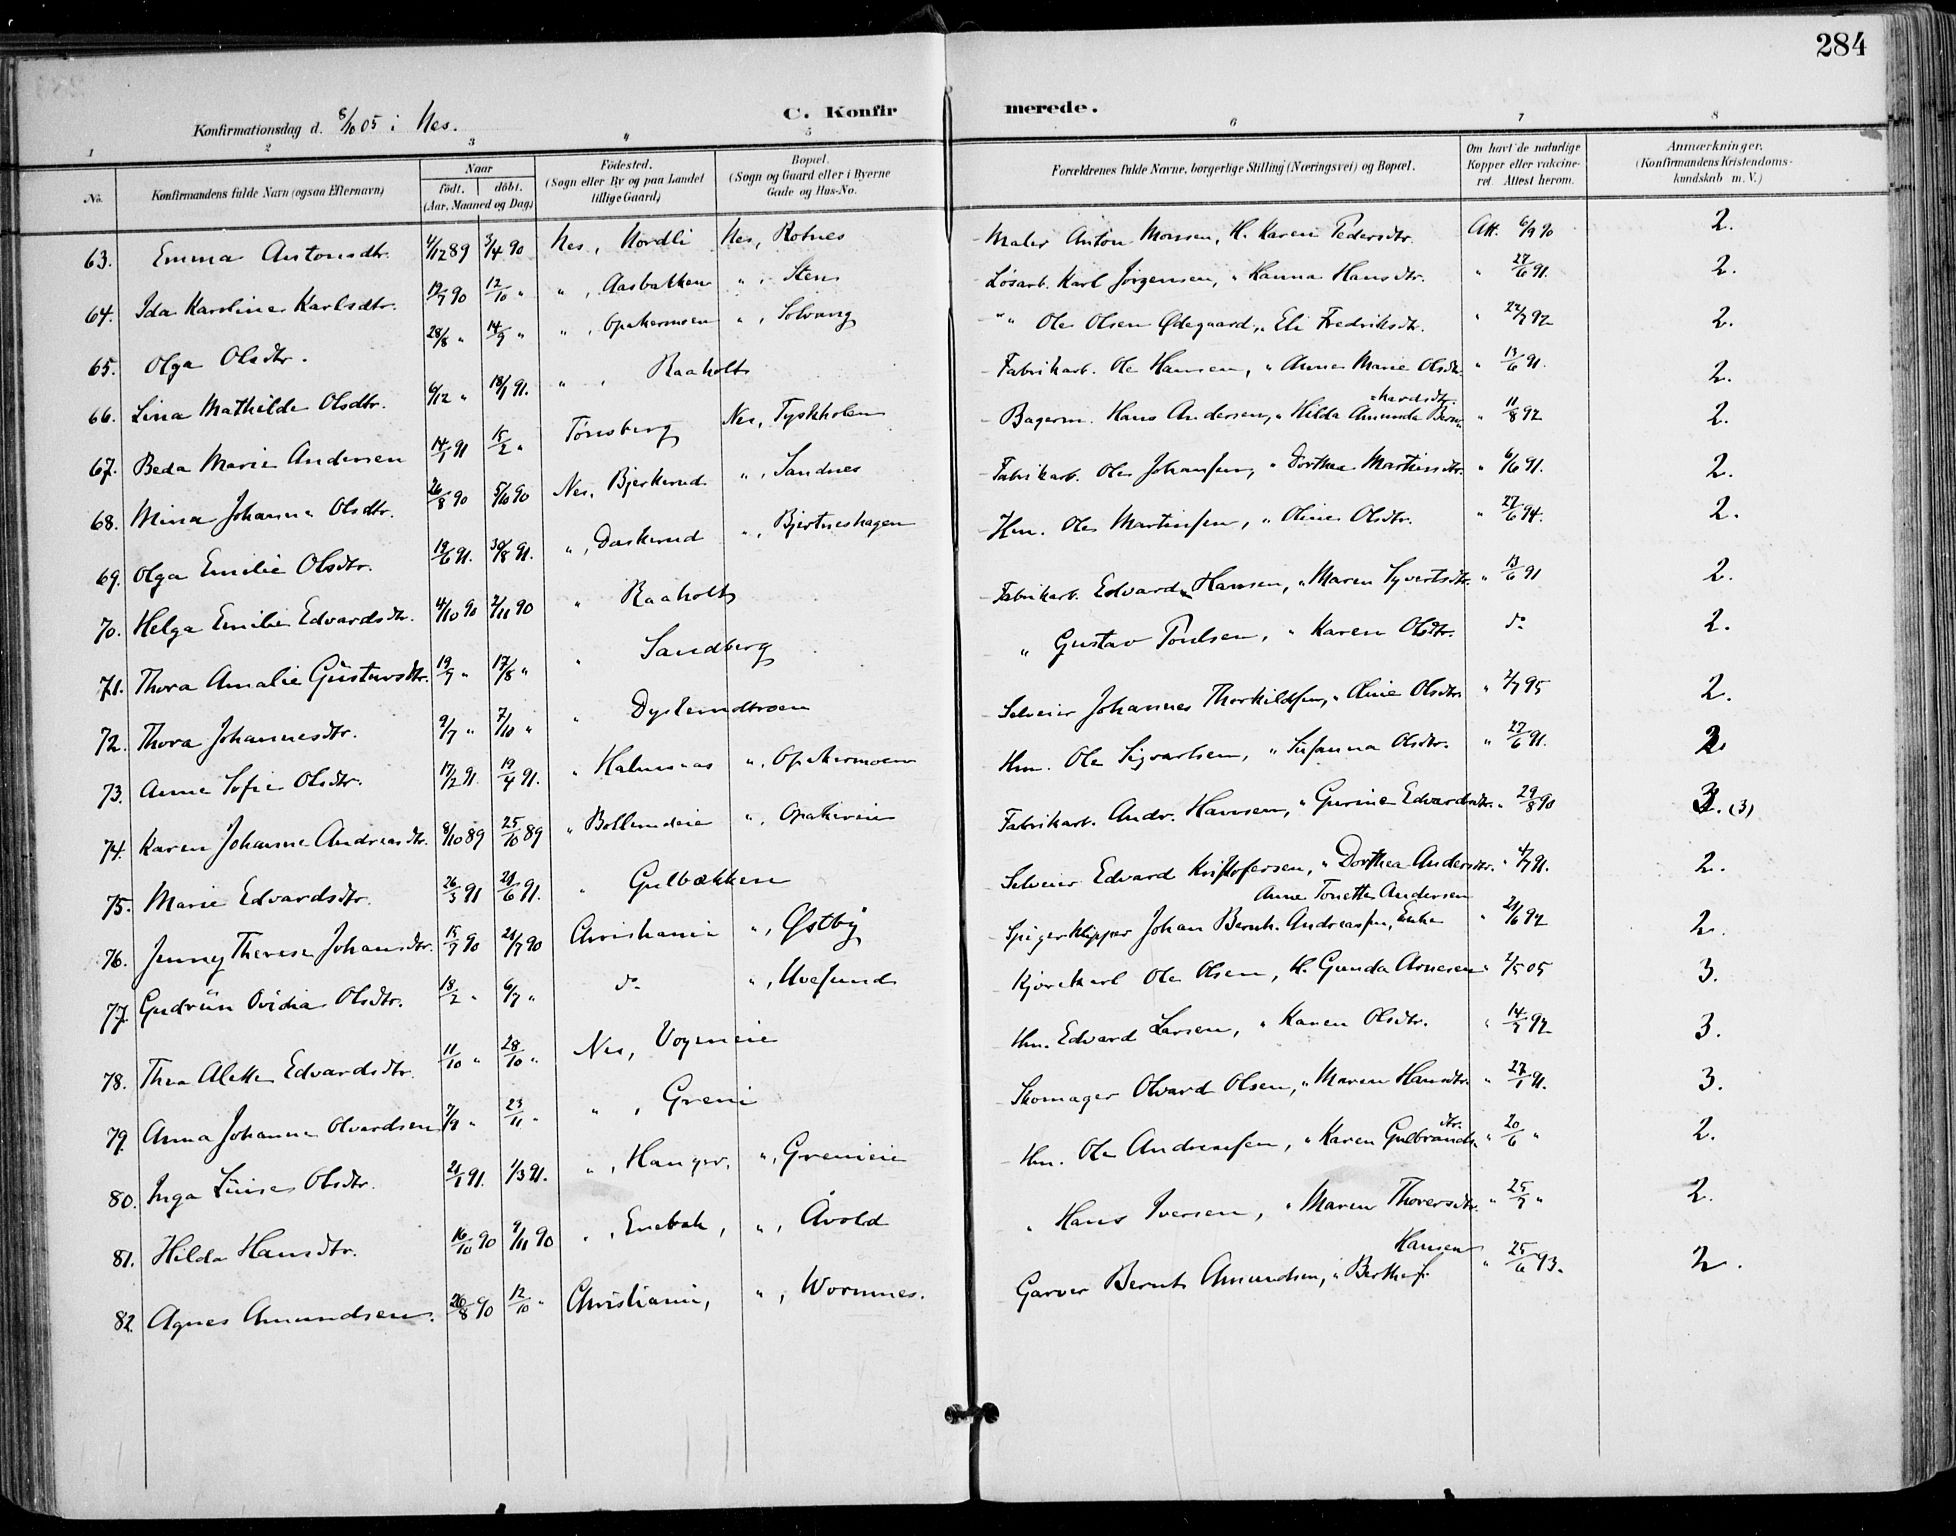 284
C. Konfirmerede.
Konfirmationsdag d. 8/10 05 i Nes.
1 2 3 4 5 6 7 8
No. Konfirmandens fulde Navn (ogsaa Efternavn) Naar födt. döbt. (Aar, Maaned og Dag) Födested. (Sogn eller By og paa Landet tillige Gaard) Bopæl. (Sogn og Gaard eller i Byerne Gade og Hus-No. Forældrenes fulde Navne, borgerlige Stilling (Næringsvei) og Bopæl. Om havt de naturlige Kopper eller vakcineret. Attest herom. Anmærkninger. (Konfirmandens Kristendomskundskab m. V.)
63. Emma Antonsdtr. 4/12 89 3/4 90 Nes, Nordli Nes, Rotnes Maler Anton Monsen, H. Karen Pedersdtr. Att. 6/9 90 2.
64. Ida Karoline Karlsdtr. 19/7 90 12/10 " " , Aasbakken " , Sten Løsarb. Karl Jørgensen, " Hanna Hansdtr. " 27/6 91. 2.
65. Olga Olsdtr. 28/8 " 14/9 " " , Opakermoen " , Solvang " " Ole Olsen Ødegaard, " Eli Fredriksdtr. " 22/7 92 2.
66. Lina Mathilde Olsdtr. 6/12 " 18/1 91. " , Raaholt Fabrikarb. Ole Hansen, " Anne Marie Olsdtr. " 13/6 91. 2.
67. Beda Marie Andersen 14/1 91 15/2 " Tønsberg Nes, Tyskholen Bagerm. Hans Andersen, " Hilda Amunda Bernhardsdtr. " 11/8 92 2.
68. Mina Johanne Olsdtr. 26/8 90 5/10 90 Nes, Bjerkerud " , Sandnes Fabrikarb. Ole Johansen, " Dorthea Martinsdtr. " 6/6 91. 2.
69. Olga Emilie Olsdtr. 19/6 91. 30/8 91. " , Daskerud " , Bjertneshagen Hm. Ole Martinsen, " Oline Olsdtr. " 27/6 94. 2.
70. Helga Emilie Edvardsdtr. 4/10 90 2/11 90 " Raaholt Fabrikarb. Edvard Hansen, " Maren Syvertsdtr. " 13/6 91 2.
71. Thora Amalie Gustavsdtr. 19/7 " 17/8 " " Sandberg " Gustav Poulsen, " Karen Olsdtr. do 2.
72. Thora Johannesdtr. 9/7 " 7/10 " " Dyslandtroen Selveier Johannes Thorkildsen, " Oline Olsdtr. " 2/7 95 2.
73. Anne Sofie Olsdtr. 17/2 91. 19/4 91. " Halmsaas " , Opakermoen Hm. Ole Sigvartsen, " Susanna Olsdtr. " 27/6 91. 2.
74. Karen Johanne Andreasdtr. 8/10 89 25/10 89 " Bollerudeie " , Opakereie Fabrikarb. Andr. Hansen, " Gurine Edvardsdtr. " 29/8 90 3. (3)
75. Marie Edvardsdtr. 26/3 91 21/6 91. " Gulbækken Selveier Edvard Kristofersen, " Dorthea Andersdtr. " 4/7 91. 2.
76. Jenny Therese Johansdtr. 15/7 90 21/7 90 Christiania " , Østby Spigerklipper Johan Bernh. Andreassen, Enke Anne Tonette Andersen " 21/6 92 2.
77. Gudrun Ovidia Olsdtr. 18/2 " 6/7 " do " , Uvesund Kjørekarl Ole Olsen, H. Gunda Arnesen " 2/5 05 3.
78. Thea Alette Edvardsdtr. 11/10 " 28/10 " Nes, Vogneie Hm. Edvard Larsen, " Karen Olsdtr. " 14/7 92 3.
79. Anna Johanne Olvardsen 7/9 " 23/11 " " , Greni Skomager Olvard Olsen, " Maren Hansdtr. " 27/1 91. 3.
80. Inga Luise Olsdtr. 21/1 91. 1/3 91. " , Hanger, " , Grenieie Hm. Ole Andreassen, " Karen Gulbrandsdtr. " 20/6 " 2.
81. Hilda Hansdtr. 16/10 90 9/11 90 " , Enebak, " , Åvold " Hans Iversen, " Maren Thoversdtr. " 25/7 " 2.
82. Agnes Amundsen. 26/8 90 12/10 " Christiania, " , Wormnes. Garver Bernt Amundsen, " Berthe f. Hansen " 25/6 93. 2.